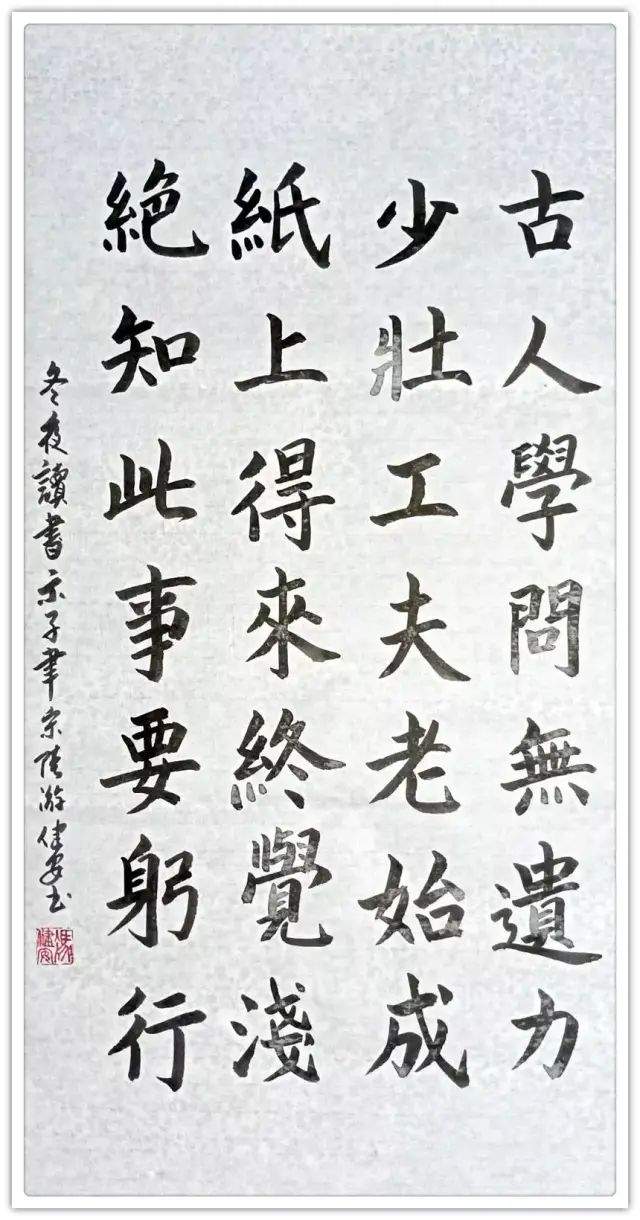 古人學問無遺力
少壯工夫老始成
紙上得來終覺淺
絶知此事要躬行
冬夜讀書示子聿宋陸游健安书